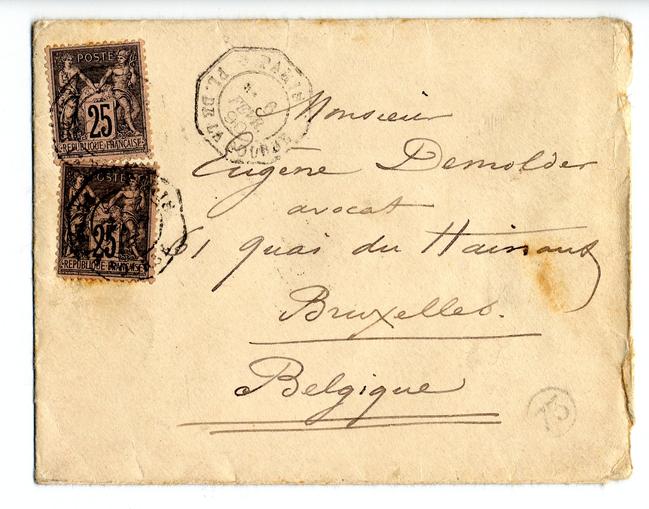 POSTE
25
REPUBLIQUE FRANCAISE
POSTE
25
REPUBLIQUE FRANCAISE
PARIS
PL. DE LA
6
FEVR
Monsieur
Eugène Demolder
avocat
61 quai du Hainaut
Bruxelles.
Belgique